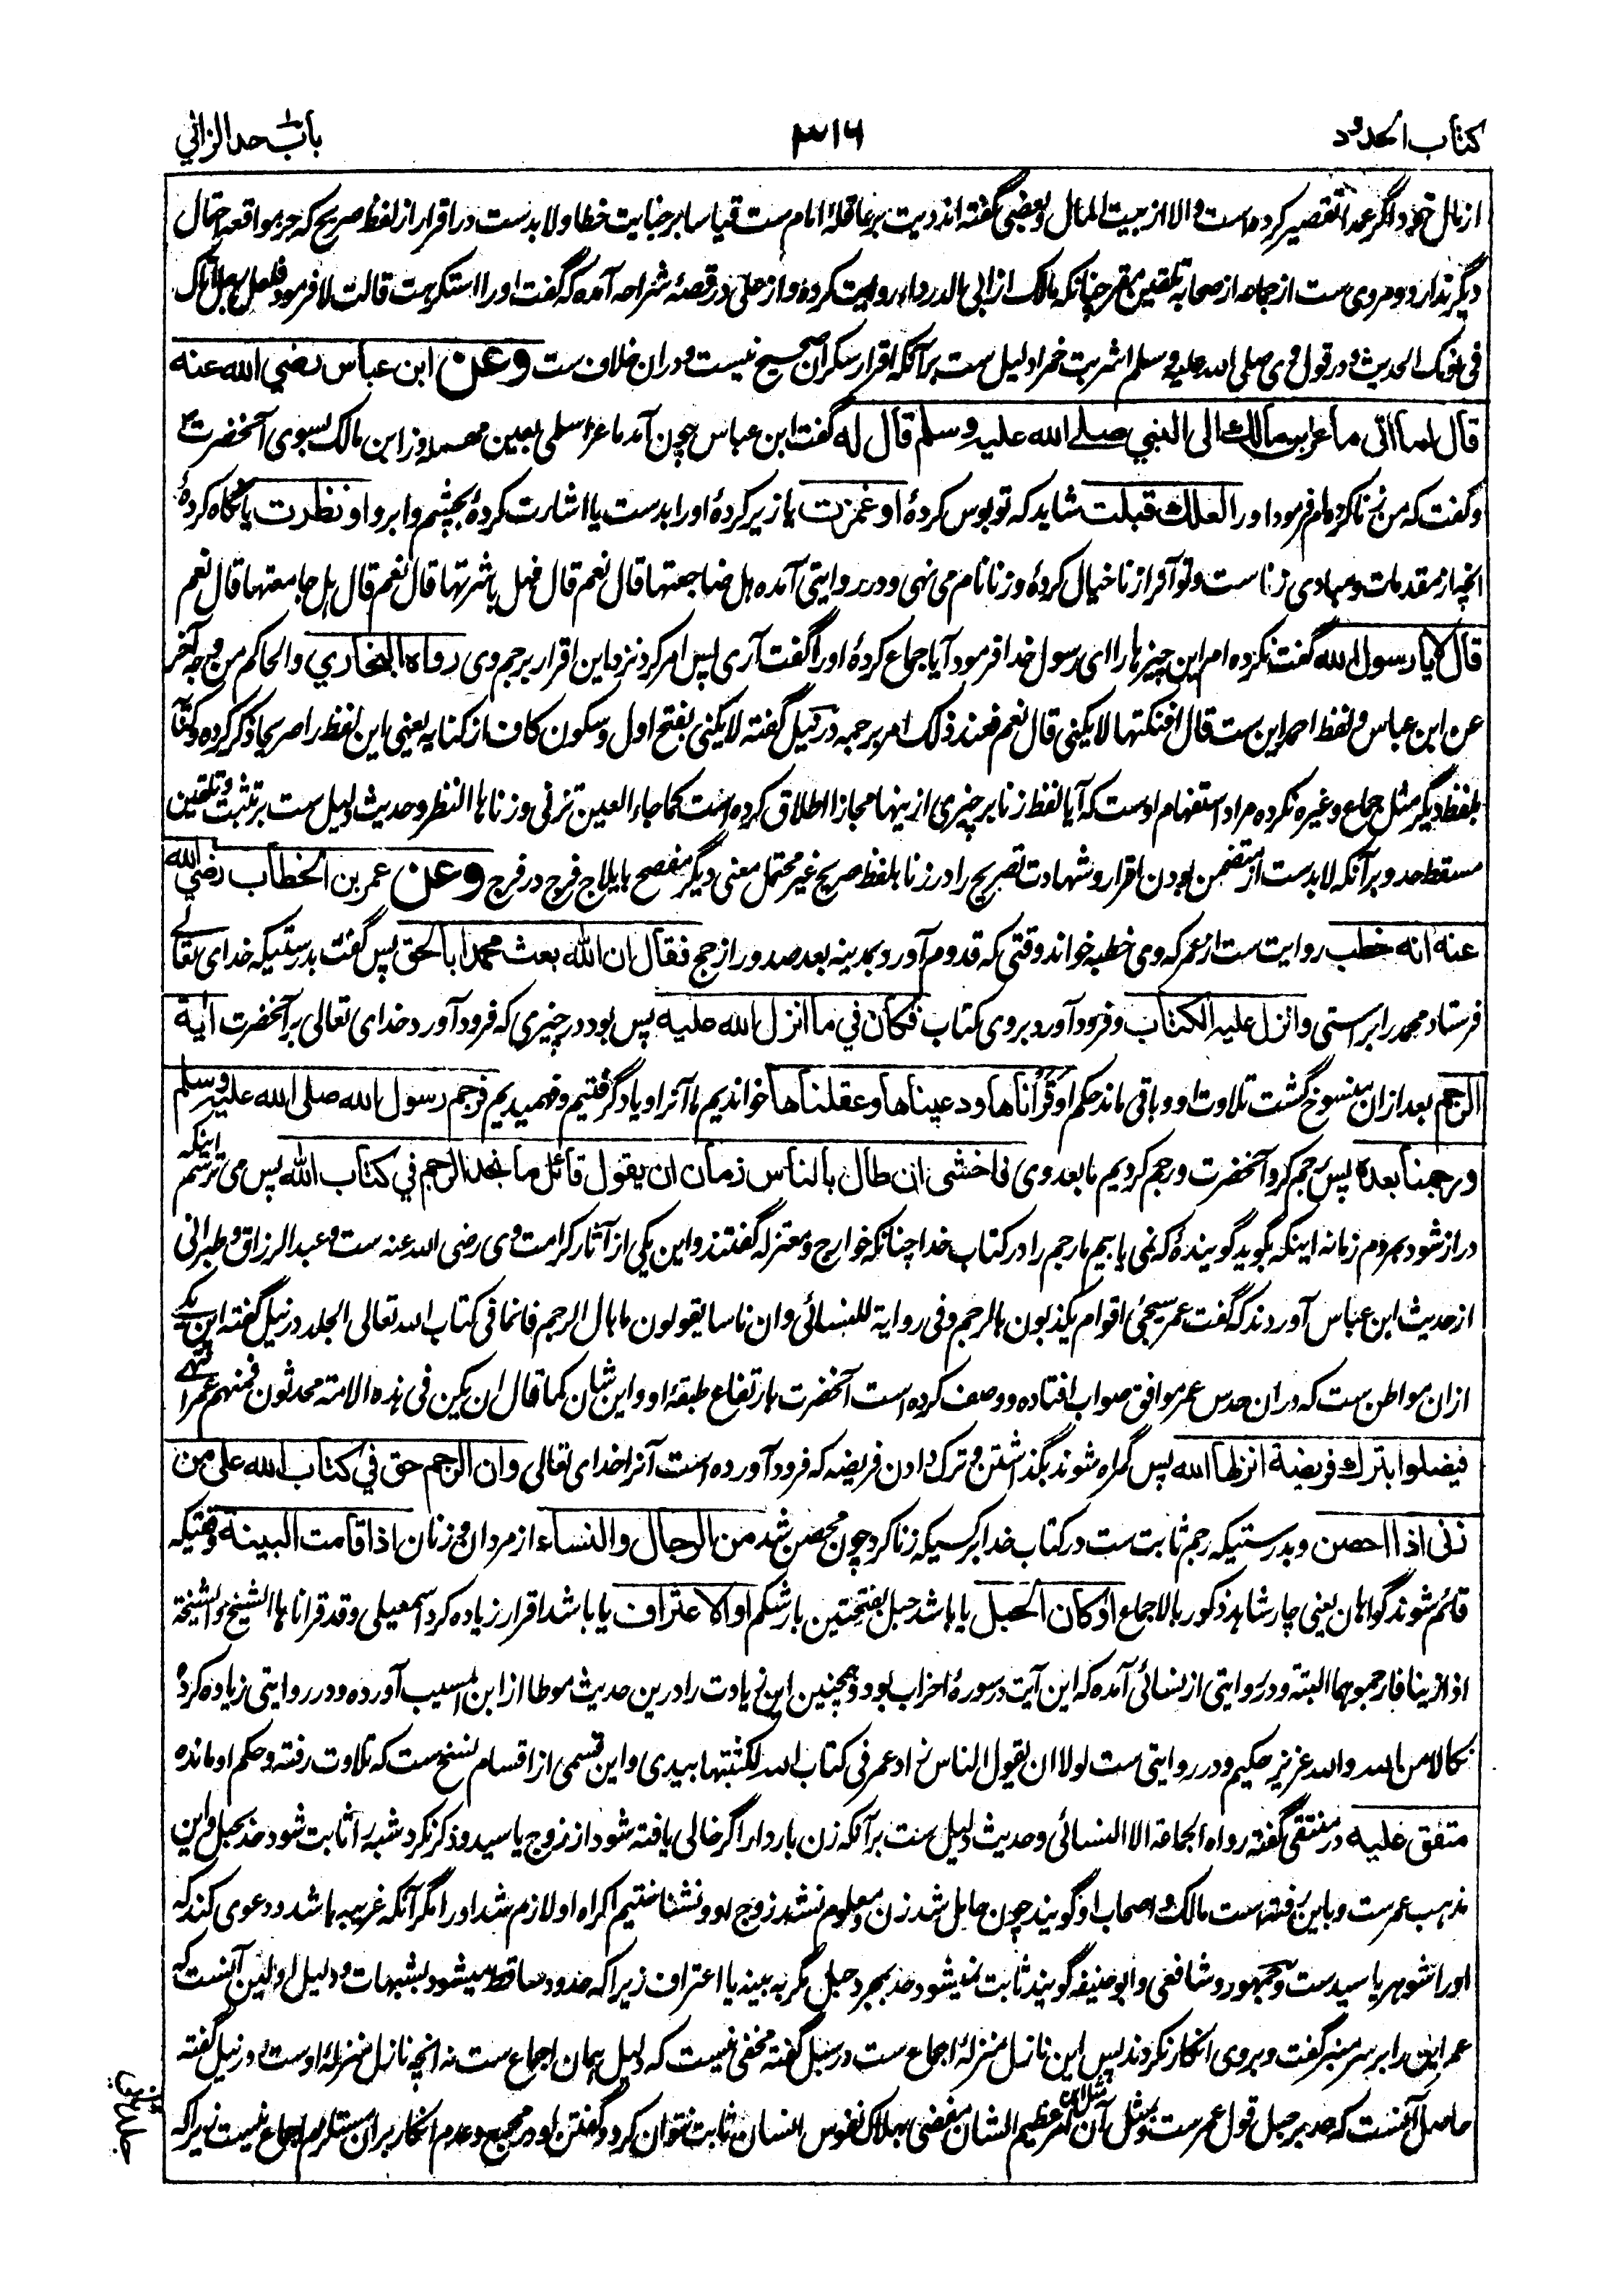 کتاب الحدود ۳۱۶ باب حد الزاني
از مال خود اگر عمدا تقصیر کرده است والا از بیت المال و بعضی گفته‌اند دیت بر عاقلهٔ امام ست قیاسا بر جنایت خطا و لا بد ست در اقرار از لفظ صریح که جز مواقعه احتمال
دیگر ندارد و مروی ست از جماعه از صحابه تلقین مقر چنانکه مالک از ابی الدرداء روایت کرده و از علی در قصهٔ شراحه آمده که گفت او را استکرهت قالت لا فرمود فلعل رجلا اتاک
فی نومک الحدیث و در قول وی صلی الله علیه وسلم اشربت خمرا دلیل ست بر آنکه اقرار سکران صحیح نیست و دران خلاف ست وعن ابن عباس رضي الله عنه
قال لما اتى ماعز بن مالك الى النبي صلى الله عليه وسلم قال له گفت ابن عباس چون آمد ماعز اسلمی بعین مهمله و زا ابن مالک بسوی آنحضرت
و گفت که من زنا کرده‌ام فرمود او را لعلك قبلت شاید که تو بوس کردهٔ او غمزت یا زیر کردهٔ او را بدست یا اشارت کردهٔ بچشم و ابرو او نظرت یا نگاه کردهٔ
انچه از مقدمات و مبادی زنا ست و تو آنرا زنا خیال کردهٔ و زنا نام می نهی و در روایتی آمده هل ضاجعتها قال نعم قال فهل باشرتها قال نعم قال هل جامعتها قال نعم
قال لا يا رسول الله گفت نکرده ام این چیزها را ای رسول خدا فرمود آیا جماع کردهٔ او را گفت آری پس امر کرد نزد این اقرار برجم وی رواه البخاري والحاکم من وجه آخر
عن ابن عباس و لفظ احمد این ست قال افنکتها لا یکنی قال نعم فعند ذلک امر برجمه در نیل گفته لا یکنی بفتح اول و سکون کاف از کنایه یعنی این لفظ را صریحا ذکر کرده و کنایت
بلفظ دیگر مثل جماع و غیره نکرده مراد استفهام او ست که آیا لفظ زنا بر چیزی ازینها مجازا اطلاق کرده است کما جاء العین تزنی و زناها النظر و حدیث دلیل ست بر تثبت و تلقین
مسقط حد و بر آنکه لا بد ست از متضمن بودن اقرار و شهادت تصریح را در زنا بلفظ صریح غیر محتمل معنی دیگر مفصح بایلاج فرج در فرج وعن عمر بن الخطاب رضي الله
عنه انه خطب روایت ست از عمر که وی خطبه خواند وقتی که قدوم آورد بمدینه بعد صدور از حج فقال ان الله بعث محمدا بالحق پس گفت بدرستیکه خدای تعالی
فرستاد محمد را براستی وانزل عليه الكتاب و فرود آورد بروی کتاب فكان في ما انزل الله عليه پس بود در چیزی که فرود آورد خدای تعالی بر آنحضرت آية
الرجم بعد ازان منسوخ گشت تلاوت او و باقی ماند حکم او قرأناها ووعيناها وعقلناها خواندیم ما آنرا و یاد گرفتیم و فهمیدیم فرجم رسول الله صلى الله عليه وسلم
ورجمنا بعده پس رجم کرد آنحضرت و رجم کردیم ما بعد وی فاخشى ان طال بالناس زمان ان يقول قائل ما نجد الرجم في كتاب الله پس می ترسم اینکه
دراز شود بمردم زمانه اینکه بگوید گویندهٔ که نمی یابیم ما رجم را در کتاب خدا چنانکه خوارج و معتزله گفتند و این یکی از آثار کرامت وی رضی الله عنه ست و عبد الرزاق و طبرانی
از حدیث ابن عباس آورده‌ند که گفت عمر سیجئ اقوام یکذبون بالرجم و فی روایة للنسائی و ان ناسا یقولون ما بال الرجم فانما فی کتاب الله تعالی الجلد در نیل گفته این یکی
ازان مواطن ست که دران حدس عمر موافق صواب افتاده و وصف کرده است آنحضرت بارتفاع طبقهٔ او و این شان کما قال ان یکن فی هذه الامة محدثون فمنهم عمر انتهی
فيضلوا بترك فريضة انزلها الله پس گمراه شوند بگذاشتن و ترک دادن فریضه که فرود آورده است آنرا خدای تعالی وان الرجم حق في كتاب الله على من
زنى اذا احصن و بدرستیکه رجم ثابت ست در کتاب خدا بر کسیکه زنا کرد چون محصن شد من الرجال والنساء از مردان و زنان اذا قامت البينة وقتیکه
قائم شوند گواهان یعنی چار شاهد ذکور بالاجماع او كان الحبل یا باشد حبل بفتحتین بار شکم او الاعتراف یا باشد اقرار زیاده کرد اسمعیلی و قد قرأناها الشیخ والشیخة
اذا زنیا فارجموهما البتة و در روایتی از نسائی آمده که این آیت در سورهٔ احزاب بود و همچنین این زیادت را درین حدیث موطا از ابن المسیب آورده و در روایتی زیاده کرده
نکالا من الله و الله عزیز حکیم و در روایتی ست لولا ان یقول الناس زاد عمر فی کتاب الله لکتبتها بیدی و این قسمی از اقسام نسخ ست که تلاوت رفته و حکم او مانده
متفق عليه در منتقی گفته رواه الجماعة الا النسائی و حدیث دلیل ست بر آنکه زن باردار اگر خالی یافته شود از زوج یا سید و ذکر نکرد شبه را ثابت شود حد بحبل و این
مذهب عمر ست و باین رفته است مالک و اصحاب او گویند چون حامل شد زن و معلوم نشد زوج او و نشناختیم اکراه او لازم شد او را مگر آنکه غریبه باشد و دعوی کند که
او را شوهر یا سید ست و جمهور و شافعی و ابو حنیفه گویند ثابت نمیشود حد بمجرد حبل مگر به بینه یا اعتراف زیرا که حدود ساقط میشود بشبهات و دلیل اولین آنست که
عمر این را بر سر منبر گفت و بروی انکار نکردند پس این نازل منزلهٔ اجماع ست در سبل گفته مخفی نیست که دلیل همان اجماع ست نه انچه نازل منزلهٔ اوست و در نیل گفته
حاصل آنست که حد بر حبل قول عمر ست و بمثل آن امر عظیم الشان مفضی بهلاک نفوس انسان ثابت نتوان کرد و گفتن او در مجمع و عدم انکار بر ان مستلزم اجماع نیست زیرا که